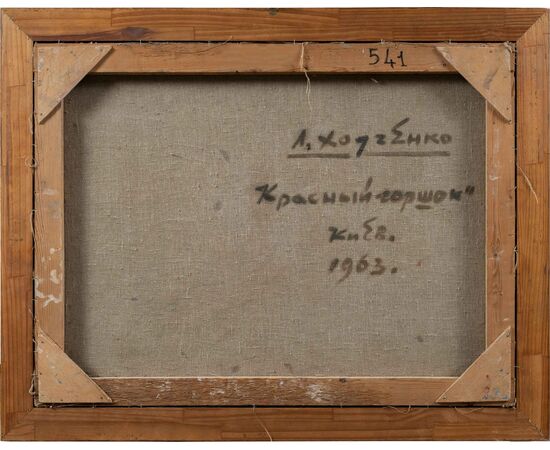 541
Л. Ходченко
"Красный горшок"
Киев.
1963.